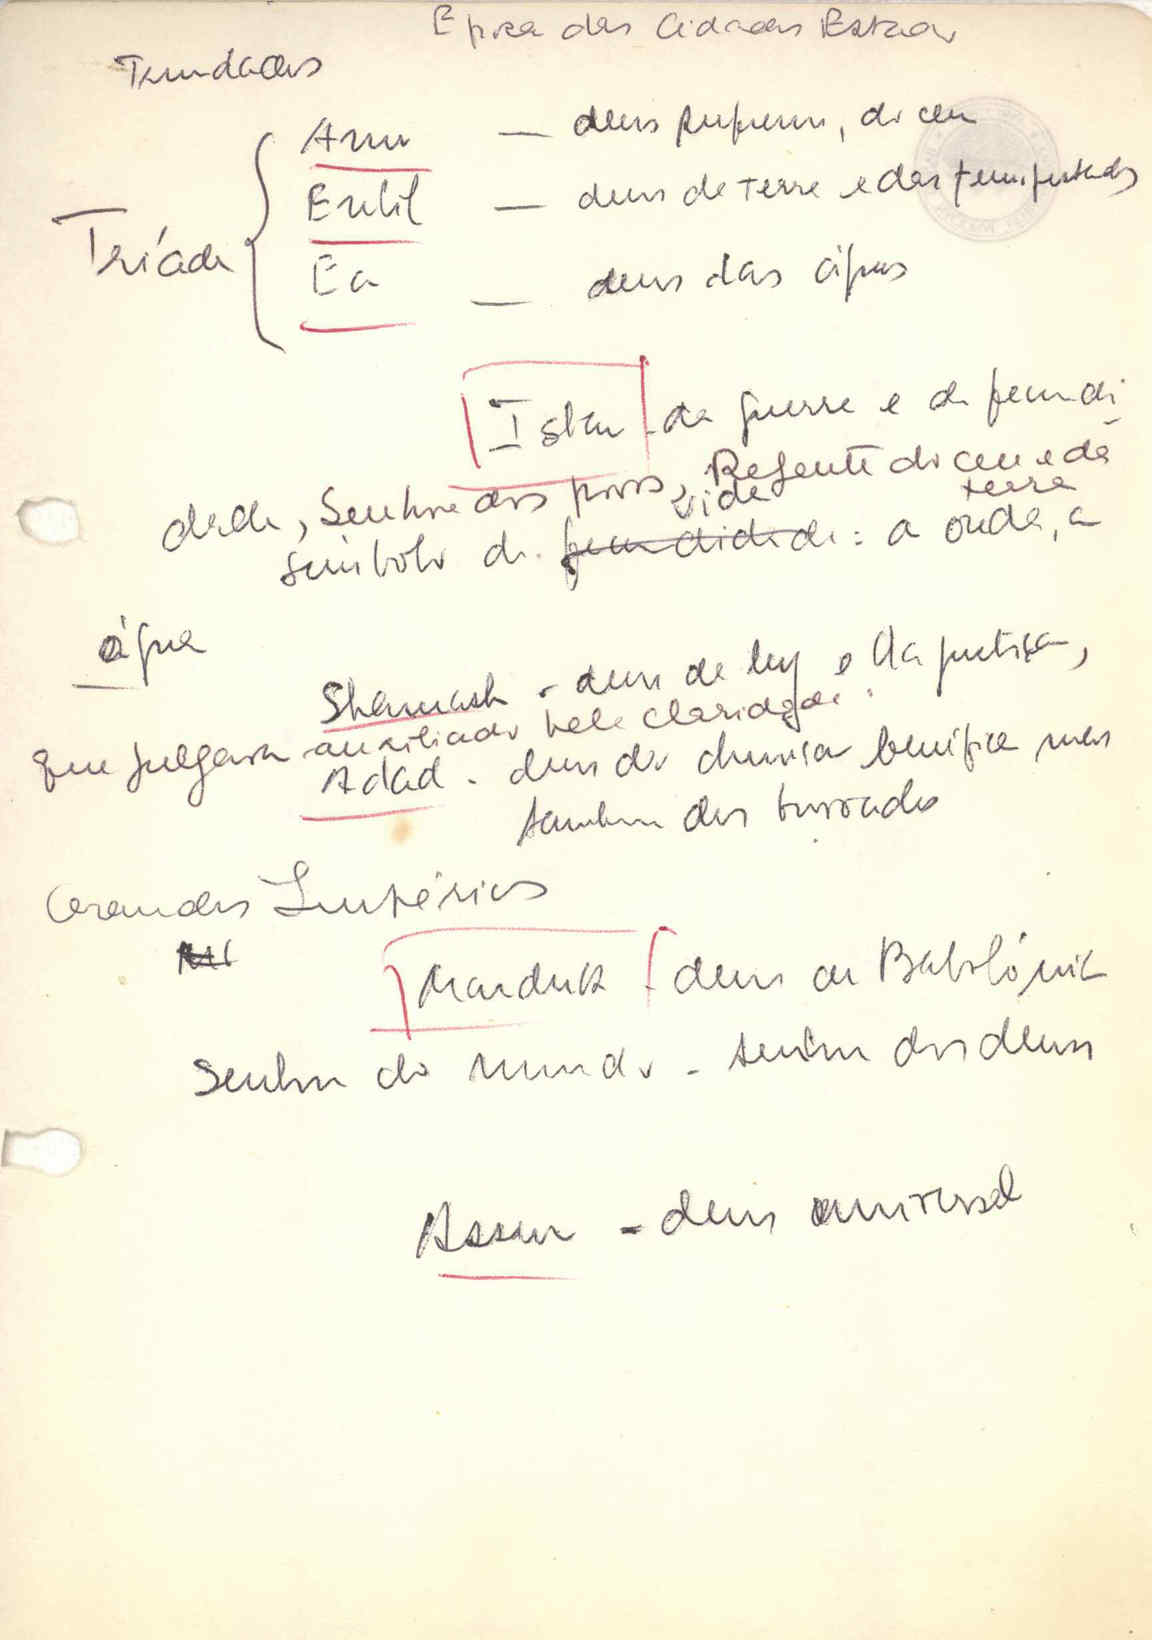 Época das Cidades Estados
Trindades
Anu — deus supremo, do ceu
Enlil — deus da terra e das tempestades
Tríade
Ea — deus das águas
Istar - da guerra e da fecundi
dade, Senhora dos povos, Regente do ceu e da
terra
vida
símbolo da fecundidade: a onda, a
água
Shamash - deus da ley e da justiça,
que julgava auxiliado pela claridade.
Adad - deus da chuva benéfica mas
também das trovoadas
Grandes Impérios
Marduk - deus da Babilónia
Senhor do mundo - senhor dos deuses
Assur - deus universal